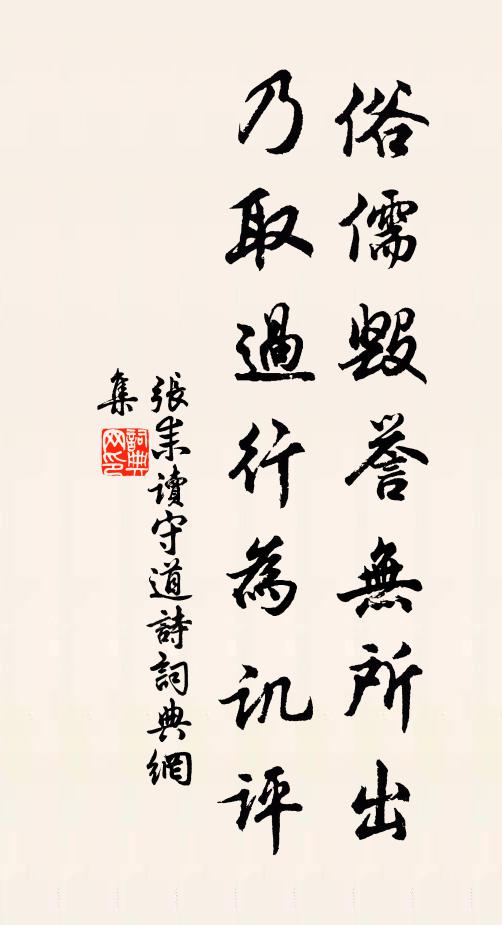 俗儒毀譽無所出
乃取過行為讥評
張耒讀守道詩詞典網
集
詞典
网印